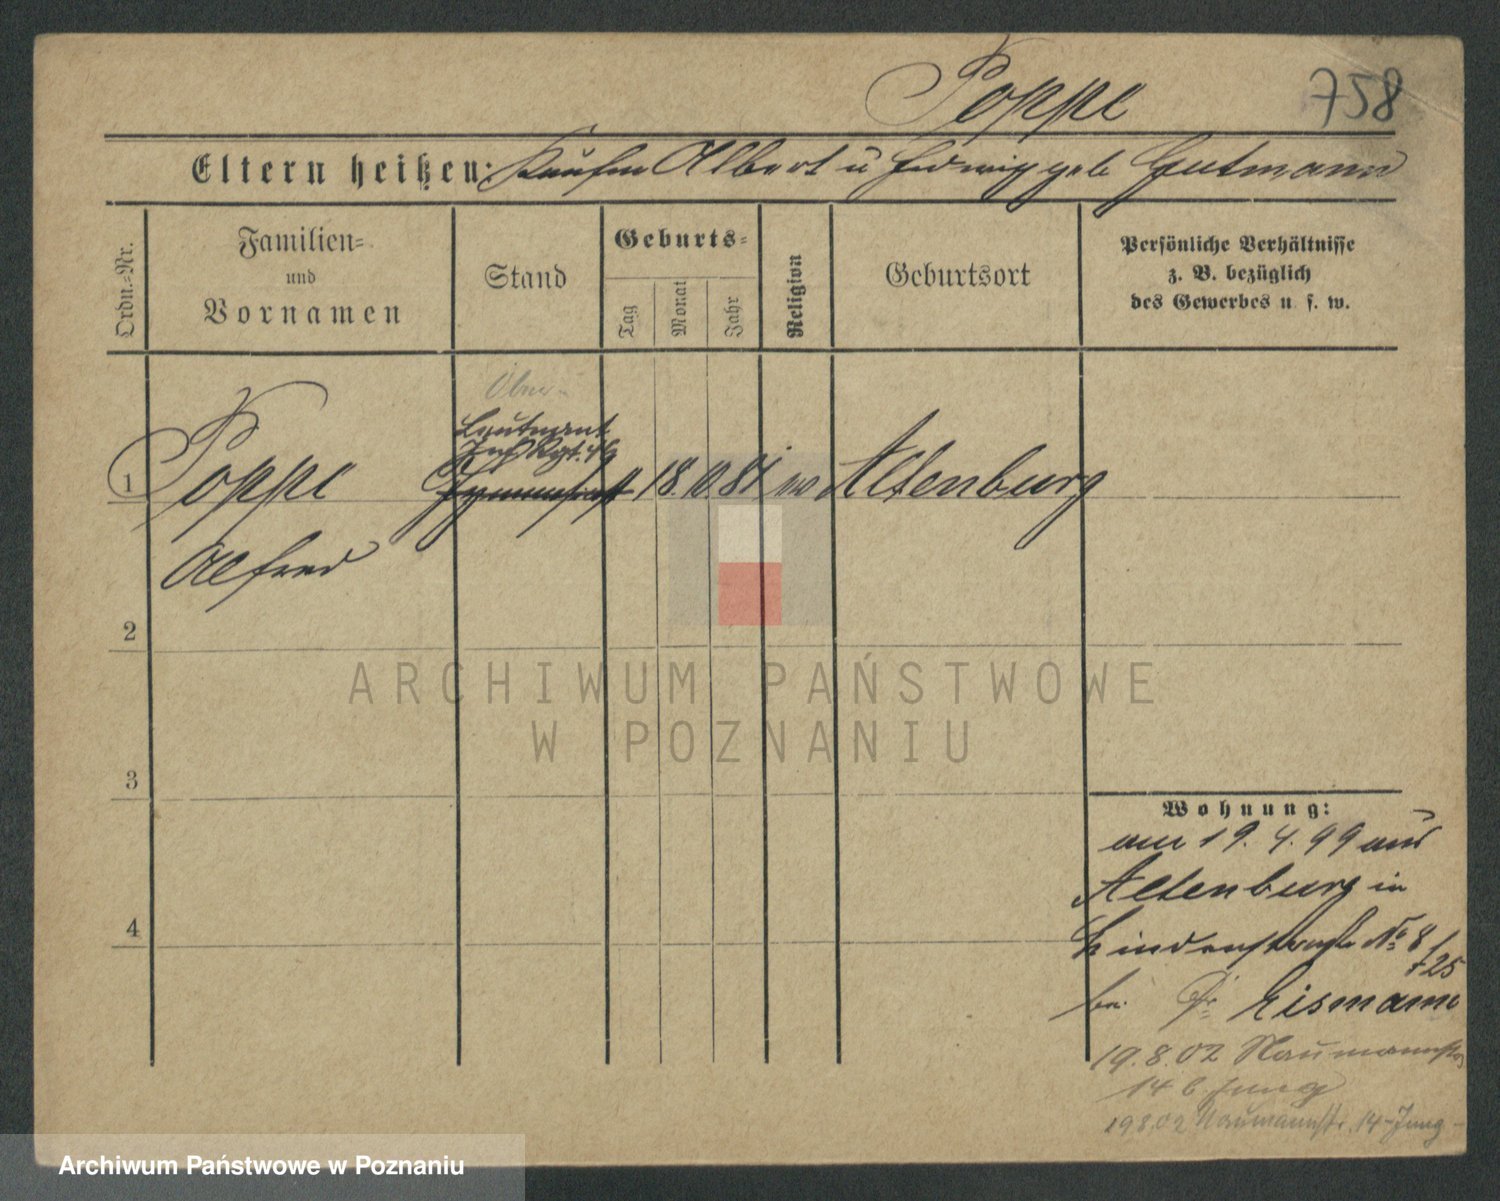 Poppe 758
Eltern heißen: Kaufm Albert u Hedwig geb Gutmann
Ordn.-Nr.
Familien-
und
Vornamen
Stand
Geburts-
Tag
Monat
Jahr
Religion
Geburtsort
Persönliche Verhältnisse
z. B. bezüglich
des Gewerbes u. s. w.
Ober-
Leutnant
Inf Rgt. 46
1 Poppe Gymnasiast 18. 10 84 Altenburg
Alfred
2
3
4
Wohnung:
am 19. 4. 99 aus
Altenburg in
Lindenstraße No 8
+25
bei Dr Eismann
19. 8. 02 Naumannstr
14 b. Jung
19 8. 02 Naumannstr. 14 - Jung -
ARCHIWUM PAŃSTWOWE
W POZNANIU
Archiwum Państwowe w Poznaniu